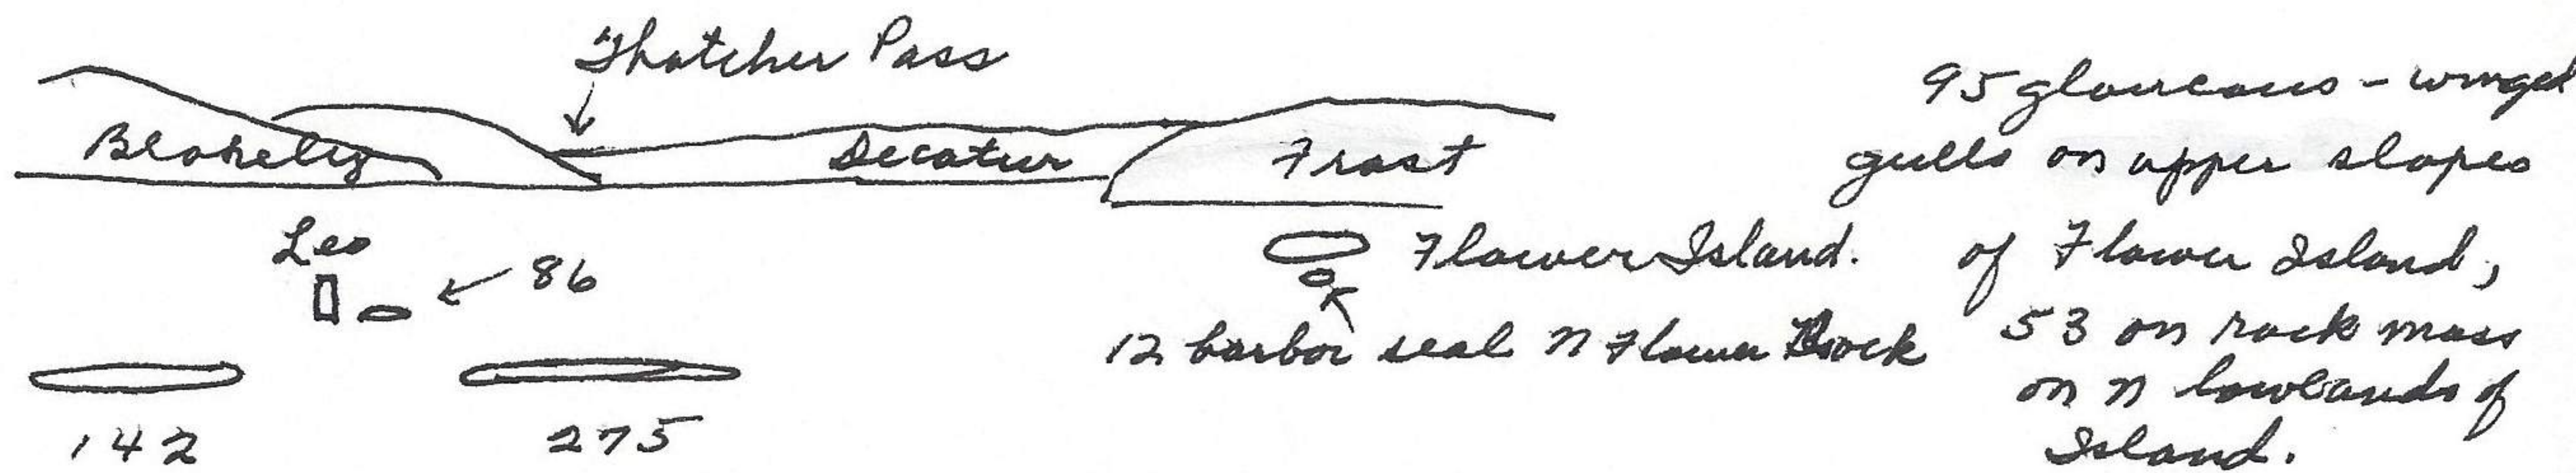 Thatcher Pass
Blakely
Decatur
Frost
Leo
86
142
275
Flower Island.
12 harbor seal N Flower Rock
95 glaucous-winged
gulls on upper slopes
of Flower Island,
53 on rock mass
on N lowlands of
Island.